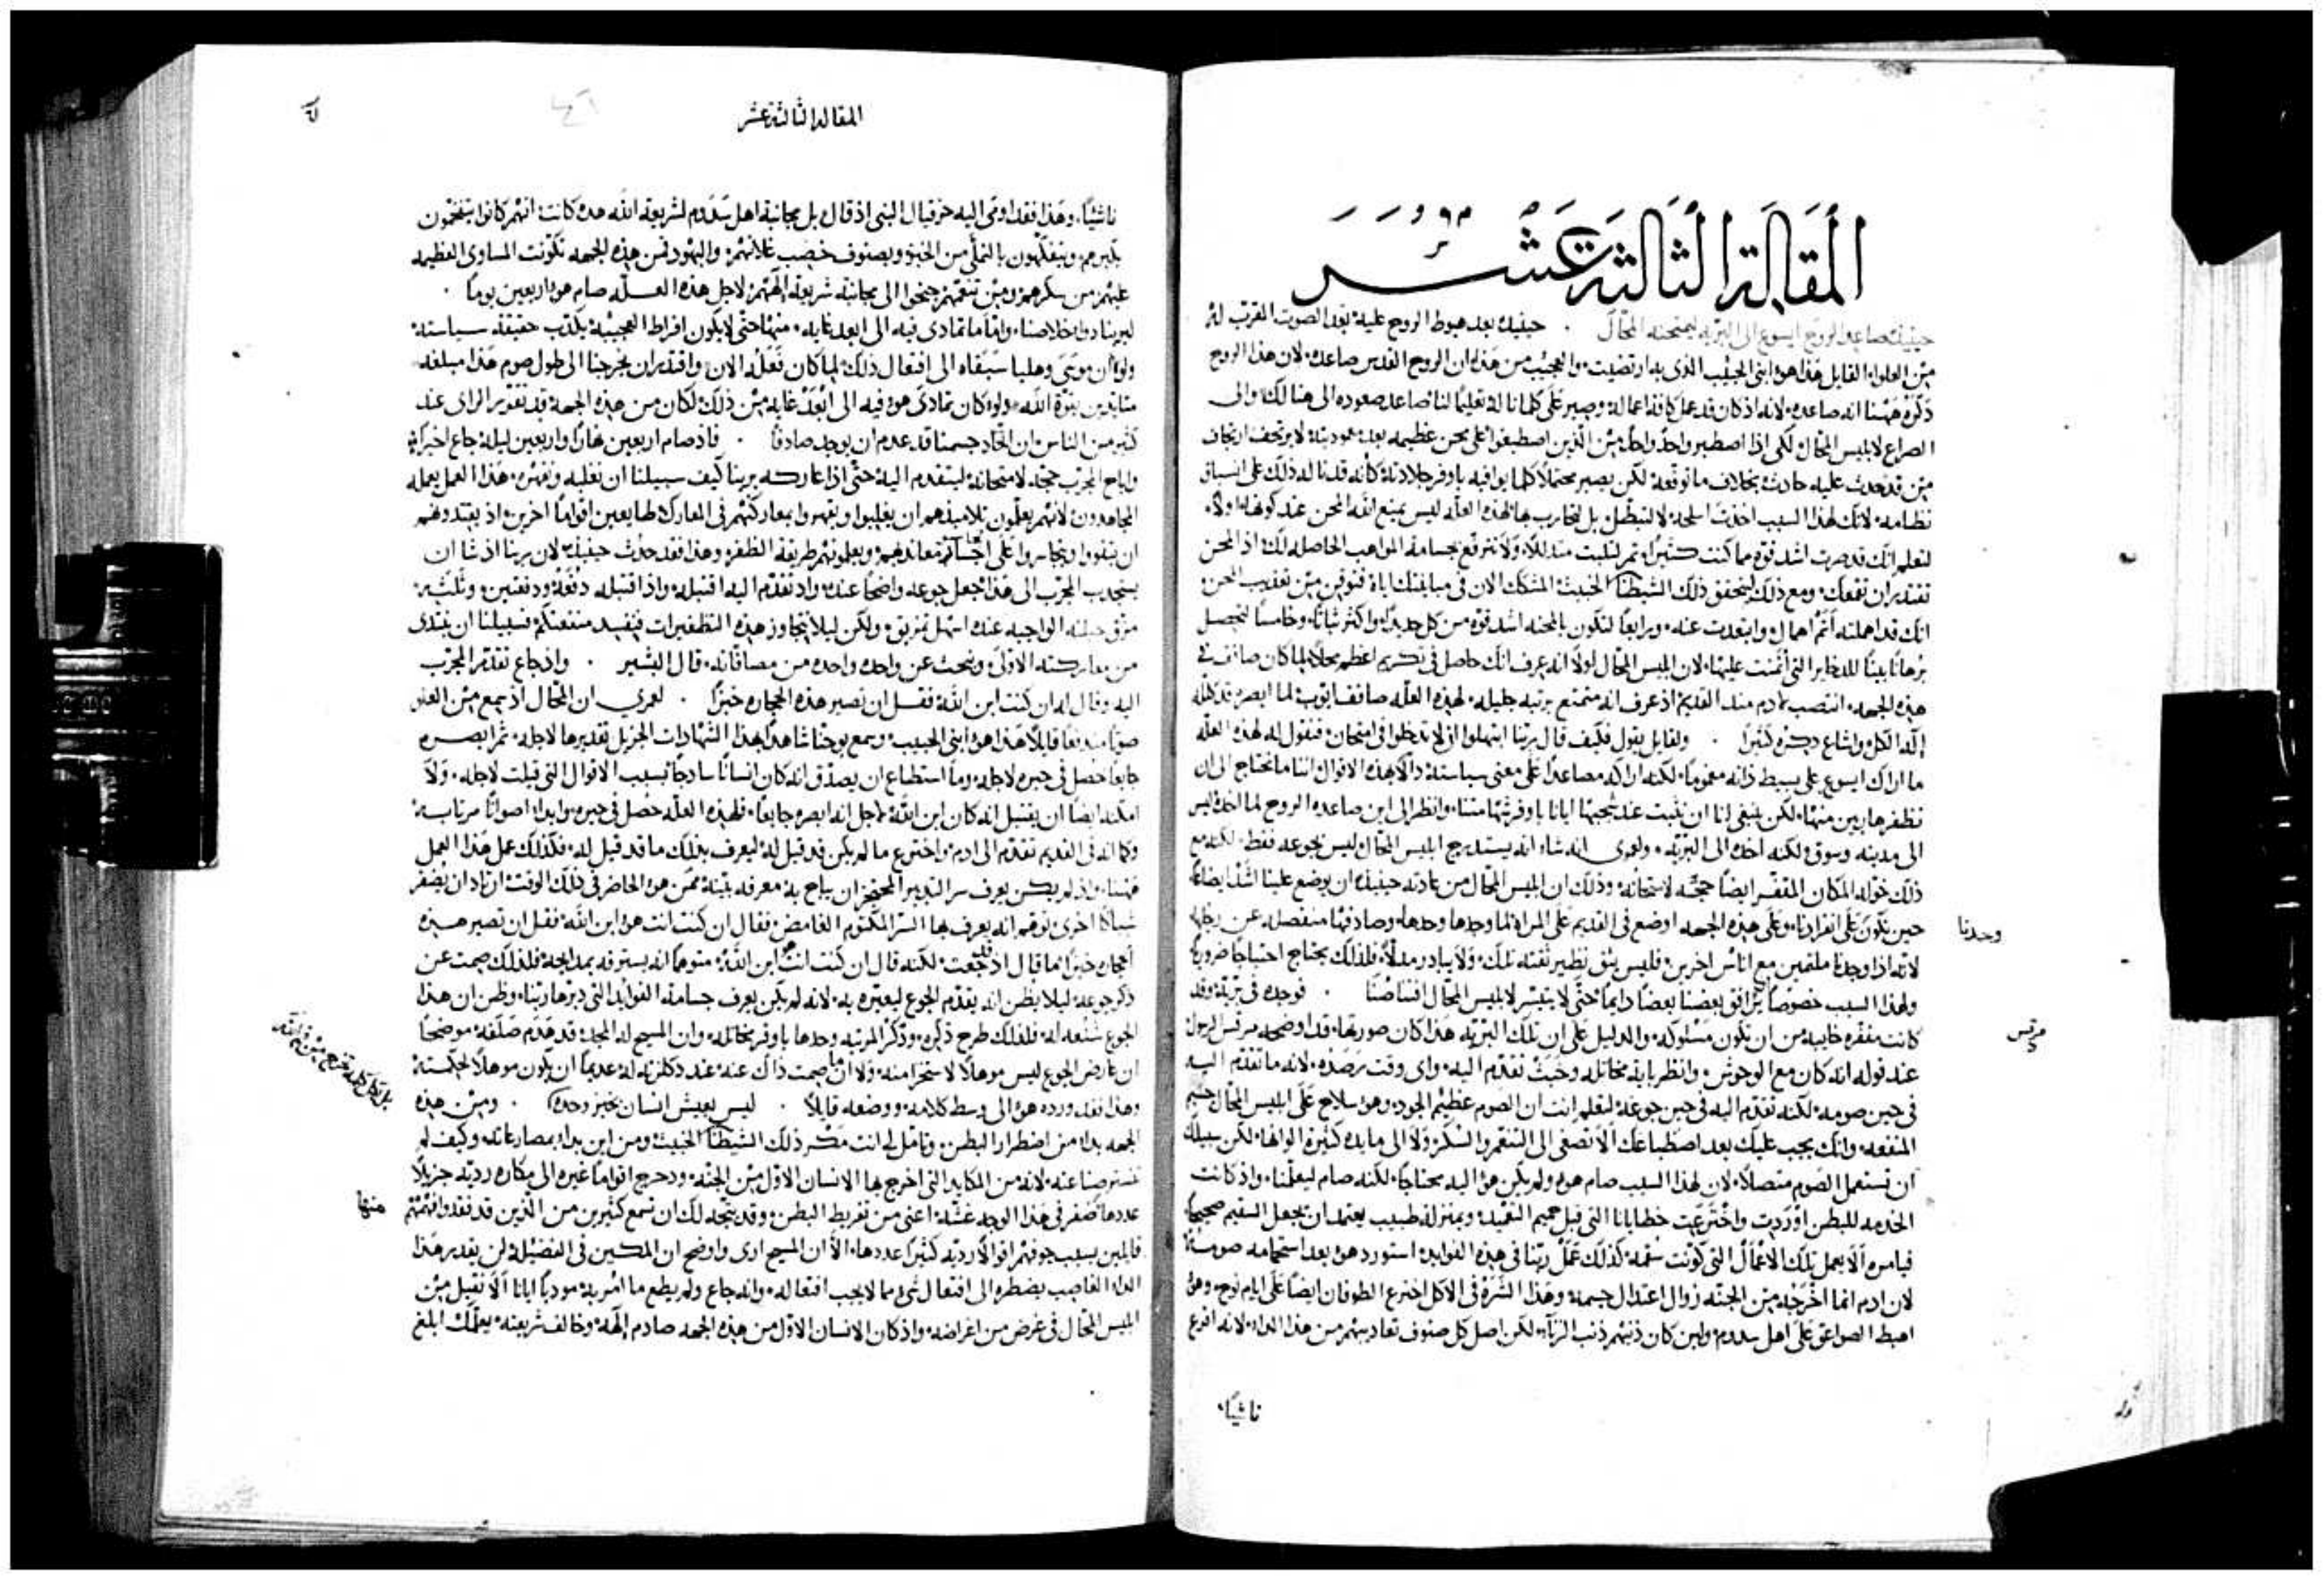 المقالة الثالثة عشر
حينيذ صاعد الروح ايسوع الى البريه ليمتحنه المحال . حينيذ بعد هبوط الروح عليه بعد الصوت القرب له
من العلو القايل هذا هو ابني الحبيب الذي به ارتضيت والعجيب من هذا ان الروح القدس صاعده لان هذا الروح
ذكر ههنا انه صاعده لانه اذ كان قد عمل كافة اعماله وصبر على كلمانا له تعليما لنا صاعد صعوده الى هنالك والى
الصراع لابليس المحال لكي اذا اصطبر واحد واحد من الذين اصطبغوا على محن عظيمه بعد معموديته لا يرتجف ارتجاف
من قد حدث عليه حادث بخلاف ما توقعه لكن يصير محتملا كلما يوافيه باوفر جلادته كانه قد نا له ذلك على اتساق
نظامه لانك لهذا السبب اخذت اسلحه لا لتبطل بل لتحارب بها لهذه العله ليس يمنع الله المحن عند كونها اولا
لتعلم انك قد صرت اشد قوه مما كنت كثيرا ثم لتلبث متذللا ولا تترفع بجسامة المواهب الحاصله لك اذ المحن
تقتدر ان تقمعك ومع ذلك ليتحقق ذلك الشيطان الخبيث المشكك الان في مباينتك اياه فتوقن من تعذيب المحن
انك قد اهملته اتم اهمال وابتعدت عنه ورابعا لتكون بالمحنه اشد قوه من كل حديد واكثر ثباتا وخامسا لتحصل
برهانا بينا للذخاير التي ائتمنت عليها لان ابليس المحال لولا انه عرف انك حاصل في تكريم اعظم محلا لما كان صافف في
هذه الجهه انتصب لادم منذ القديم اذ عرف انه متمتع برتبه جليله لهذه العله صافف ايوب لما ابصره قد كلله
اله الكل واشاع ذكره كثيرا . ولقايل يقول فكيف قال ربنا ابتهلوا ان لا تدخلوا في امتحان فنقول له لهذه العله
ما اراك ايسوع على بسيط ذاته مغموما لكنه اراكه مصاعدا على معنى سياسته ذاكرا هذه الاقوال اننا ما نحتاج الى ان
نطفر هاربين منها لكن ينبغي لنا ان نثبت عند تجيبها ايانا باوفر شهامتنا وانظر الى اين صاعده الروح لما اخذه ليس
الى مدينه وسوق لكنه اخذه الى البريه ولعمري انه شاء انه يستدرج ابليس المحال ليس بجوعه فقط لكنه مع
ذلك خوله المكان المقفر ايضا حجه لامتحانه وذلك ان ابليس المحال من عادته حينيذ ان يوضع علينا اشد ايضاعا
حين نكون على انفرادنا وعلى هذه الجهه اوضع في القديم على المراه لما وجدها وحدها وصادفها منفصله عن رجلها
لانه اذا وجدنا ملتمين مع اناس اخرين فليس يثق نظير ثقته تلك ولا يبادر مدلا فلذلك نحتاج احتياجا ضروريا
ولهذا السبب خصوصا يرافق بعضنا بعضا دايما حتى لا يتيسر لابليس المحال اقتناصنا . فوجده في بريه وقد
كانت مقفره خايبه من ان تكون مسلوكه والدليل على ان تلك البريه هذا كان صورتها قد اوضحه مرقس الرسول
عند قوله انه كان مع الوحوش وانظر باية مخاتله وخبث تقدم اليه واي وقت ترصده لانه ما تقدم اليه
في حين صومه لكنه تقدم اليه في حين جوعه لتعلم انت ان الصوم عظيم الجود وهو سلاح على ابليس المحال جسيم
المنفعه وانك يجب عليك بعد اصطباغك الا تصغي الى التنعم والسكر ولا الى مايده كثيره الوانها لكن سبيلك
ان تستعمل الصوم متصلا لان لهذا السبب صام هو ولم يكن هو اليه محتاجا لكنه صام ليعلمنا واذ كانت
الخدمه للبطن اوردت واخترعت خطايانا التي قبل حميم التغييد وبمنزلة طبيب يعتمد ان يجعل السقيم صحيحا
فيامره الا يعمل تلك الاعمال التي كونت سقمه كذلك عمل ربنا في هذه الفوايد استورد هو بعد استحمامه صومه
لان ادم انما اخرجه من الجنه زوال اعتدال جسمه وهذا الشره في الاكل اخترع الطوفان ايضا على ايام نوح وهو
اهبط الصواعق على اهل سدوم ولين كان ذنبهم ذنب الزناة لكن اصل كل صنوف تعاديبهم من هذا الداء لانه افرع
وحدنا
مرقس
ناشيًا
المقالة الثالثة عشر
ناشيا وهذا فقد اومى اليه حزقيال النبي اذ قال بل مجانبة اهل سدوم لشريعة الله هذه كانت انهم كانوا يتفخمون
بكبرهم ويتفكهون بالتملي من الخبز وبصنوف خصب غلاتهم واليهود فمن هذه الجهه تكونت المساوي العظيمه
عليهم من سكرهم ومن تنعمهم جنحوا الى مجانبة شريعة الههم لاجل هذه العله صام هو اربعين يوما .
ليرينا دوا خلاصنا وانما ما تمادى فيه الى ابعد غايه منها حتى لا يكون افراط العجيبه يكذب حقيقة سياسته
ولو ان موسى وهليا سبقاه الى افتعال ذلك لما كان فعله الان واقتدر ان يخرجنا الى طول صوم هذا مبلغه
متايدين بقوة الله ولو كان تمادى هو فيه الى ابعد غايه من ذلك لكان من هذه الجهه قد تقدير الراي عند
كثير من الناس ان اتخاذ جسمنا قد عدم ان يوجد صادقا . فاذ صام اربعين نهارا واربعين ليله جاع اخيرا
واباح المجرب حجه لامتحانه ليتقدم اليه حتى اذا عاركه يرينا كيف سبيلنا ان نغلبه ونقهره هذا العمل يعمله
المجاهدون لانهم يعلمون تلاميذهم ان يغلبوا ويقهروا بمعاركتهم في المعارك طايعين اقواما اخرين اذ يقتدونهم
ان يتقووا ويتجاسروا على اجسام معانديهم ويعلمونهم طريقة الظفر وهذا فقد حدث حينيذ لان ربنا اذ شا ان
يستجذب المجرب الى هذا جعل جوعه واضحا عنده واذ تقدم اليه اقتبله واذ اقتبله دفعه ودفعتين وثلثه
مزق حيلته الواجبه عنده اسهل تمزيق ولكن ليلا يتجاوز هذه التظفيرات فنفيد منفعتكم فسبيلنا ان نبتدى
من معاركته الاولى ونبحث عن واحده واحده من مصافاته قال البشير . واذ جاع تقدم المجرب
اليه وقال له ان كنت ابن الله فقل ان تصير هذه الحجاره خبزا . لعمري ان المحال اذ سمع من العلو
صوتا مندفعا قايلا هذا هو ابني الحبيب وسمع يوحنا شاهدا بهذا الشهادات الجزيل تقديرها لاجله ثم ابصره
جايعا حصل في حيره لاجله وما استطاع ان يصدق انه كان انسانا ساذجا بسبب الاقوال التي قيلت لاجله ولا
امكنه ايضا ان يقتبل انه كان ابن الله لاجل انه ابصره جايعا فلهذه العله حصل في حيره وابدا اصواتا مرتابه
وكما انه في القديم تقدم الى ادم واخترع ما لم يكن قد قيل له ليعرف بذلك ما قد قيل له فكذلك عمل هذا العمل
ههنا واذ لم يكن يعرف سر التدبير المحتجز ان يباح به معرفه بينه ممن هو الحاضر في ذلك الوقت ارتاد ان يضفر
شباكا اخرى توهم انه يعرف بها السر المكتوم الغامض فقال ان كنت انت هو ابن الله فقل ان تصير هذه
الحجاره خبزا ما قال اذ قد جعت لكنه قال ان كنت انت ابن الله متوهما انه يسترقه بمدايحه فلذلك صمت عن
ذكر جوعه ليلا يظن انه يقدم الجوع ليعيره به لانه لم يكن يعرف جسامة الفوايد التي دبرها ربنا وظن ان هذا
الجوع شنعه له فلذلك طرح ذكره وذكر المرتبه وحدها باوفر مخاتله وان المسيح له المجد قد هدم صلفه موضحا
ان عارض الجوع ليس موهلا لاستحزا منه ولا ان ما صمت ذاك عنه عند ذكلزته له عديما ان يكون موهلا لحكمته
وهذا فقد ورده هو الى وسط كلامه ووضعه قايلا . ليس يعيش انسان بخبز وحده . ومن هذه
الجهه بدا من اضطرار البطن وتامل لي انت مكر ذلك الشيطان الخبيث ومن اين بدا بمصارعاته وكيف لم
تستر صناعته لانه من المكايد التي اخرج بها الانسان الاول من الجنه ودحرج اقواما غيره الى مكاره رديه جزيلا
عددها ضفر في هذا الوجه غشه اعني من تفريط البطن وقد يتجه لك ان تسمع كثيرين من الذين قد فقدوا فهمهم
قايلين بسبب جوفهم اقوالا رديه كثيرا عددها الا ان المسيح ارى واوضح ان المكين في الفضيله لن يقدر هذا
الداء الغاصب يضطره الى افتعال شيء مما لا يجب افتعاله وانه جاع ولم يطع ما امر به مودبا ايانا الا نقبل من
ابليس المحال في غرض من اغراضه واذ كان الانسان الاول من هذه الجهه صادم الهه وخالف شريعته يعلمك ابلغ
منها